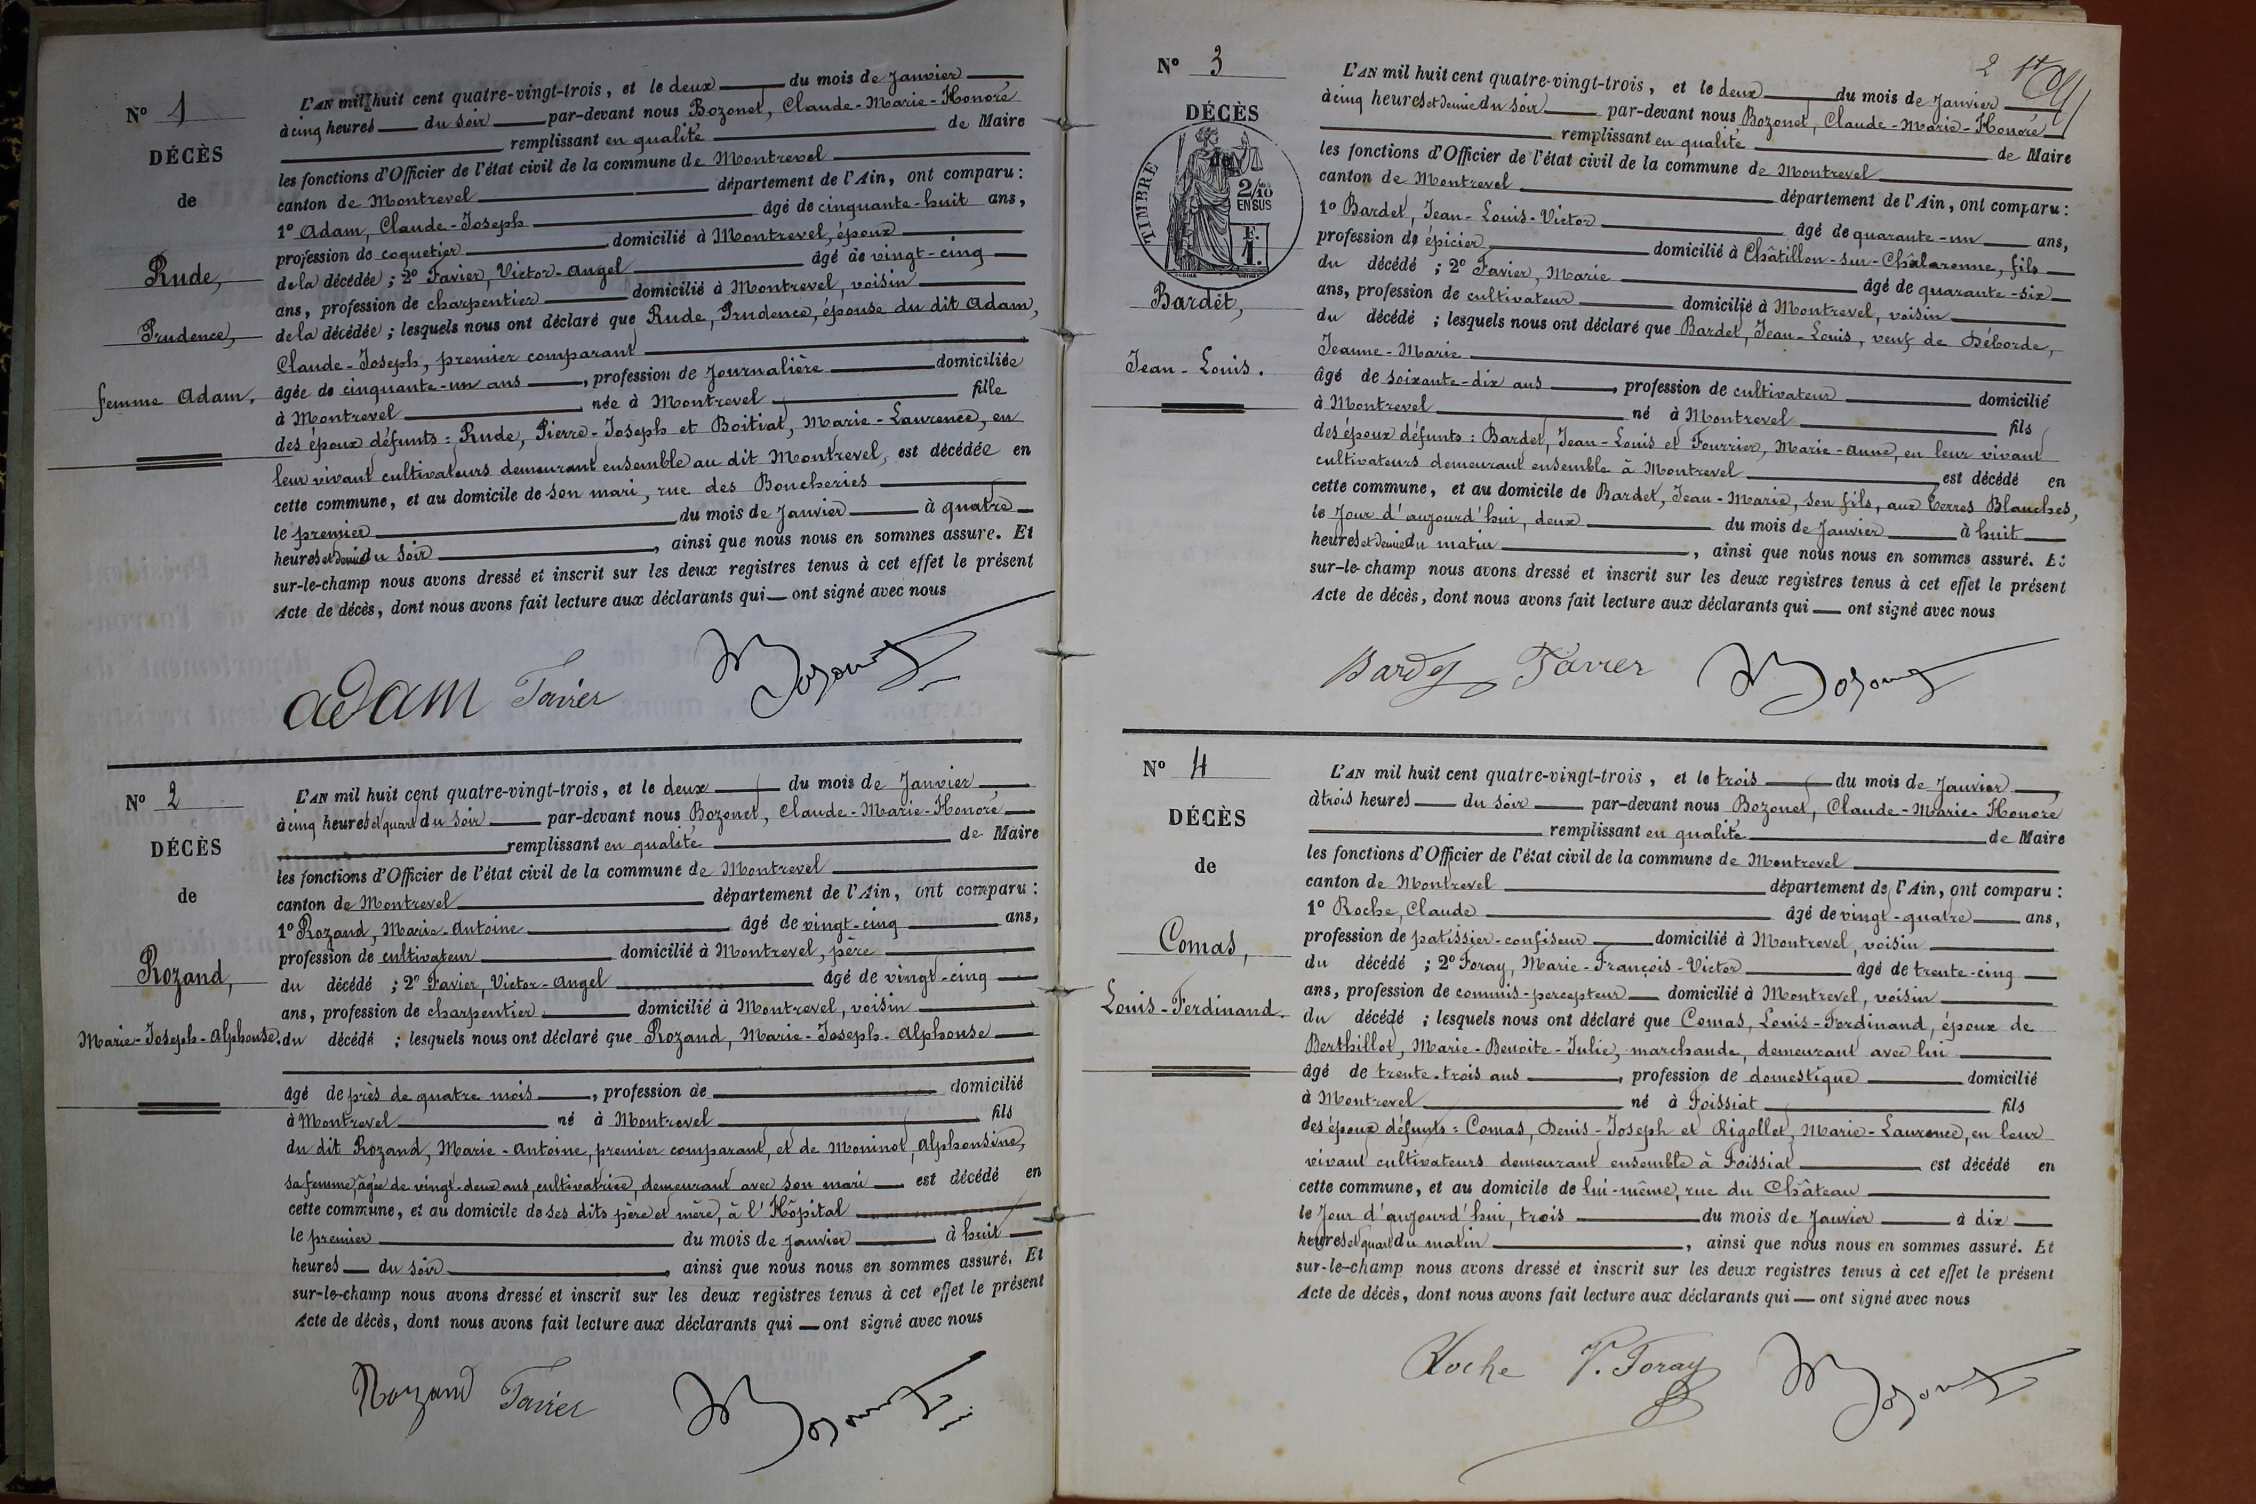 N° 1
DÉCÈS
de
Rude,
Prudence,
femme Adam.
L'AN mil huit cent quatre-vingt-trois, et le deux du mois de Janvier
à cinq heures du soir par-devant nous Bozonet, Claude-Marie-Honoré
remplissant en qualité de Maire
les fonctions d'Officier de l'état civil de la commune de Montrevel
canton de Montrevel département de l'Ain, ont comparu :
1° Adam, Claude-Joseph âgé de cinquante-huit ans,
profession de coquetier domicilié à Montrevel, époux
de la décédée ; 2° Favier, Victor-Angel âgé de vingt-cinq
ans, profession de charpentier domicilié à Montrevel, voisin
de la décédée ; lesquels nous ont déclaré que Rude, Prudence, épouse du dit Adam,
Claude-Joseph, premier comparant
âgée de cinquante-un ans, profession de Journalière domiciliée
à Montrevel née à Montrevel fille
des époux défunts : Rude, Pierre-Joseph et Boitiat, Marie-Laurence, en
leur vivant cultivateurs demeurant ensemble au dit Montrevel, est décédée en
cette commune, et au domicile de son mari, rue des Boucheries
le premier du mois de Janvier à quatre
heures et demie du soir, ainsi que nous nous en sommes assuré. Et
sur-le-champ nous avons dressé et inscrit sur les deux registres tenus à cet effet le présent
Acte de décès, dont nous avons fait lecture aux déclarants qui ont signé avec nous
Adam Favier Bozonet
N° 2
DÉCÈS
de
Rozand,
Marie-Joseph-Alphonse.
L'AN mil huit cent quatre-vingt-trois, et le deux du mois de Janvier
à cinq heures et quart du soir par-devant nous Bozonet, Claude-Marie-Honoré
remplissant en qualité de Maire
les fonctions d'Officier de l'état civil de la commune de Montrevel
canton de Montrevel département de l'Ain, ont comparu :
1° Rozand, Marie-Antoine âgé de vingt-cinq ans,
profession de cultivateur domicilié à Montrevel, père
du décédé ; 2° Favier, Victor-Angel âgé de vingt-cinq
ans, profession de charpentier domicilié à Montrevel, voisin
du décédé ; lesquels nous ont déclaré que Rozand, Marie-Joseph-Alphonse
âgé de près de quatre mois, profession de domicilié
à Montrevel né à Montrevel fils
du dit Rozand, Marie-Antoine, premier comparant, et de Moninot, Alphonsine,
sa femme, âgée de vingt-deux ans, cultivatrice, demeurant avec son mari est décédé en
cette commune, et au domicile de ses dits père et mère, à l'Hôpital
le premier du mois de Janvier à huit
heures du soir, ainsi que nous nous en sommes assuré. Et
sur-le-champ nous avons dressé et inscrit sur les deux registres tenus à cet effet le présent
Acte de décès, dont nous avons fait lecture aux déclarants qui ont signé avec nous
Rozand Favier Bozonet
2
N° 3
DÉCÈS
de
TIMBRE
2/10
EN SUS
F.
1.
Bardet,
Jean-Louis.
L'AN mil huit cent quatre-vingt-trois, et le deux du mois de Janvier
à cinq heures et demie du soir par-devant nous Bozonet, Claude-Marie-Honoré
remplissant en qualité de Maire
les fonctions d'Officier de l'état civil de la commune de Montrevel
canton de Montrevel département de l'Ain, ont comparu :
1° Bardet, Jean-Louis-Victor âgé de quarante-un ans,
profession de épicier domicilié à Châtillon-sur-Chalaronne, fils
du décédé ; 2° Favier, Marie âgé de quarante-six
ans, profession de cultivateur domicilié à Montrevel, voisin
du décédé ; lesquels nous ont déclaré que Bardet, Jean-Louis, veuf de Déborde,
Jeanne-Marie
âgé de soixante-dix ans, profession de cultivateur domicilié
à Montrevel né à Montrevel fils
des époux défunts : Bardet, Jean-Louis et Fourrier, Marie-Anne, en leur vivant
cultivateurs demeurant ensemble à Montrevel est décédé en
cette commune, et au domicile de Bardet, Jean-Marie, son fils, aux Terres Blanches,
le Jour d'aujourd'hui, deux du mois de Janvier à huit
heures et demie du matin, ainsi que nous nous en sommes assuré. Et
sur-le-champ nous avons dressé et inscrit sur les deux registres tenus à cet effet le présent
Acte de décès, dont nous avons fait lecture aux déclarants qui ont signé avec nous
Bardet Favier Bozonet
N° 4
DÉCÈS
de
Comas,
Louis-Ferdinand.
L'AN mil huit cent quatre-vingt-trois, et le trois du mois de Janvier,
à trois heures du soir par-devant nous Bozonet, Claude-Marie-Honoré
remplissant en qualité de Maire
les fonctions d'Officier de l'état civil de la commune de Montrevel
canton de Montrevel département de l'Ain, ont comparu :
1° Roche, Claude âgé de vingt-quatre ans,
profession de patissier-confiseur domicilié à Montrevel, voisin
du décédé ; 2° Foray, Marie-François-Victor âgé de trente-cinq
ans, profession de commis-percepteur domicilié à Montrevel, voisin
du décédé ; lesquels nous ont déclaré que Comas, Louis-Ferdinand, époux de
Berthillot, Marie-Benoite-Julie, marchande, demeurant avec lui
âgé de trente-trois ans, profession de domestique domicilié
à Montrevel né à Foissiat fils
des époux défunts : Comas, Denis-Joseph et Rigollet, Marie-Laurence, en leur
vivant cultivateurs demeurant ensemble à Foissiat est décédé en
cette commune, et au domicile de lui-même, rue du Château
le Jour d'aujourd'hui, trois du mois de Janvier à dix
heures et quart du matin, ainsi que nous nous en sommes assuré. Et
sur-le-champ nous avons dressé et inscrit sur les deux registres tenus à cet effet le présent
Acte de décès, dont nous avons fait lecture aux déclarants qui ont signé avec nous
Roche V. Foray Bozonet